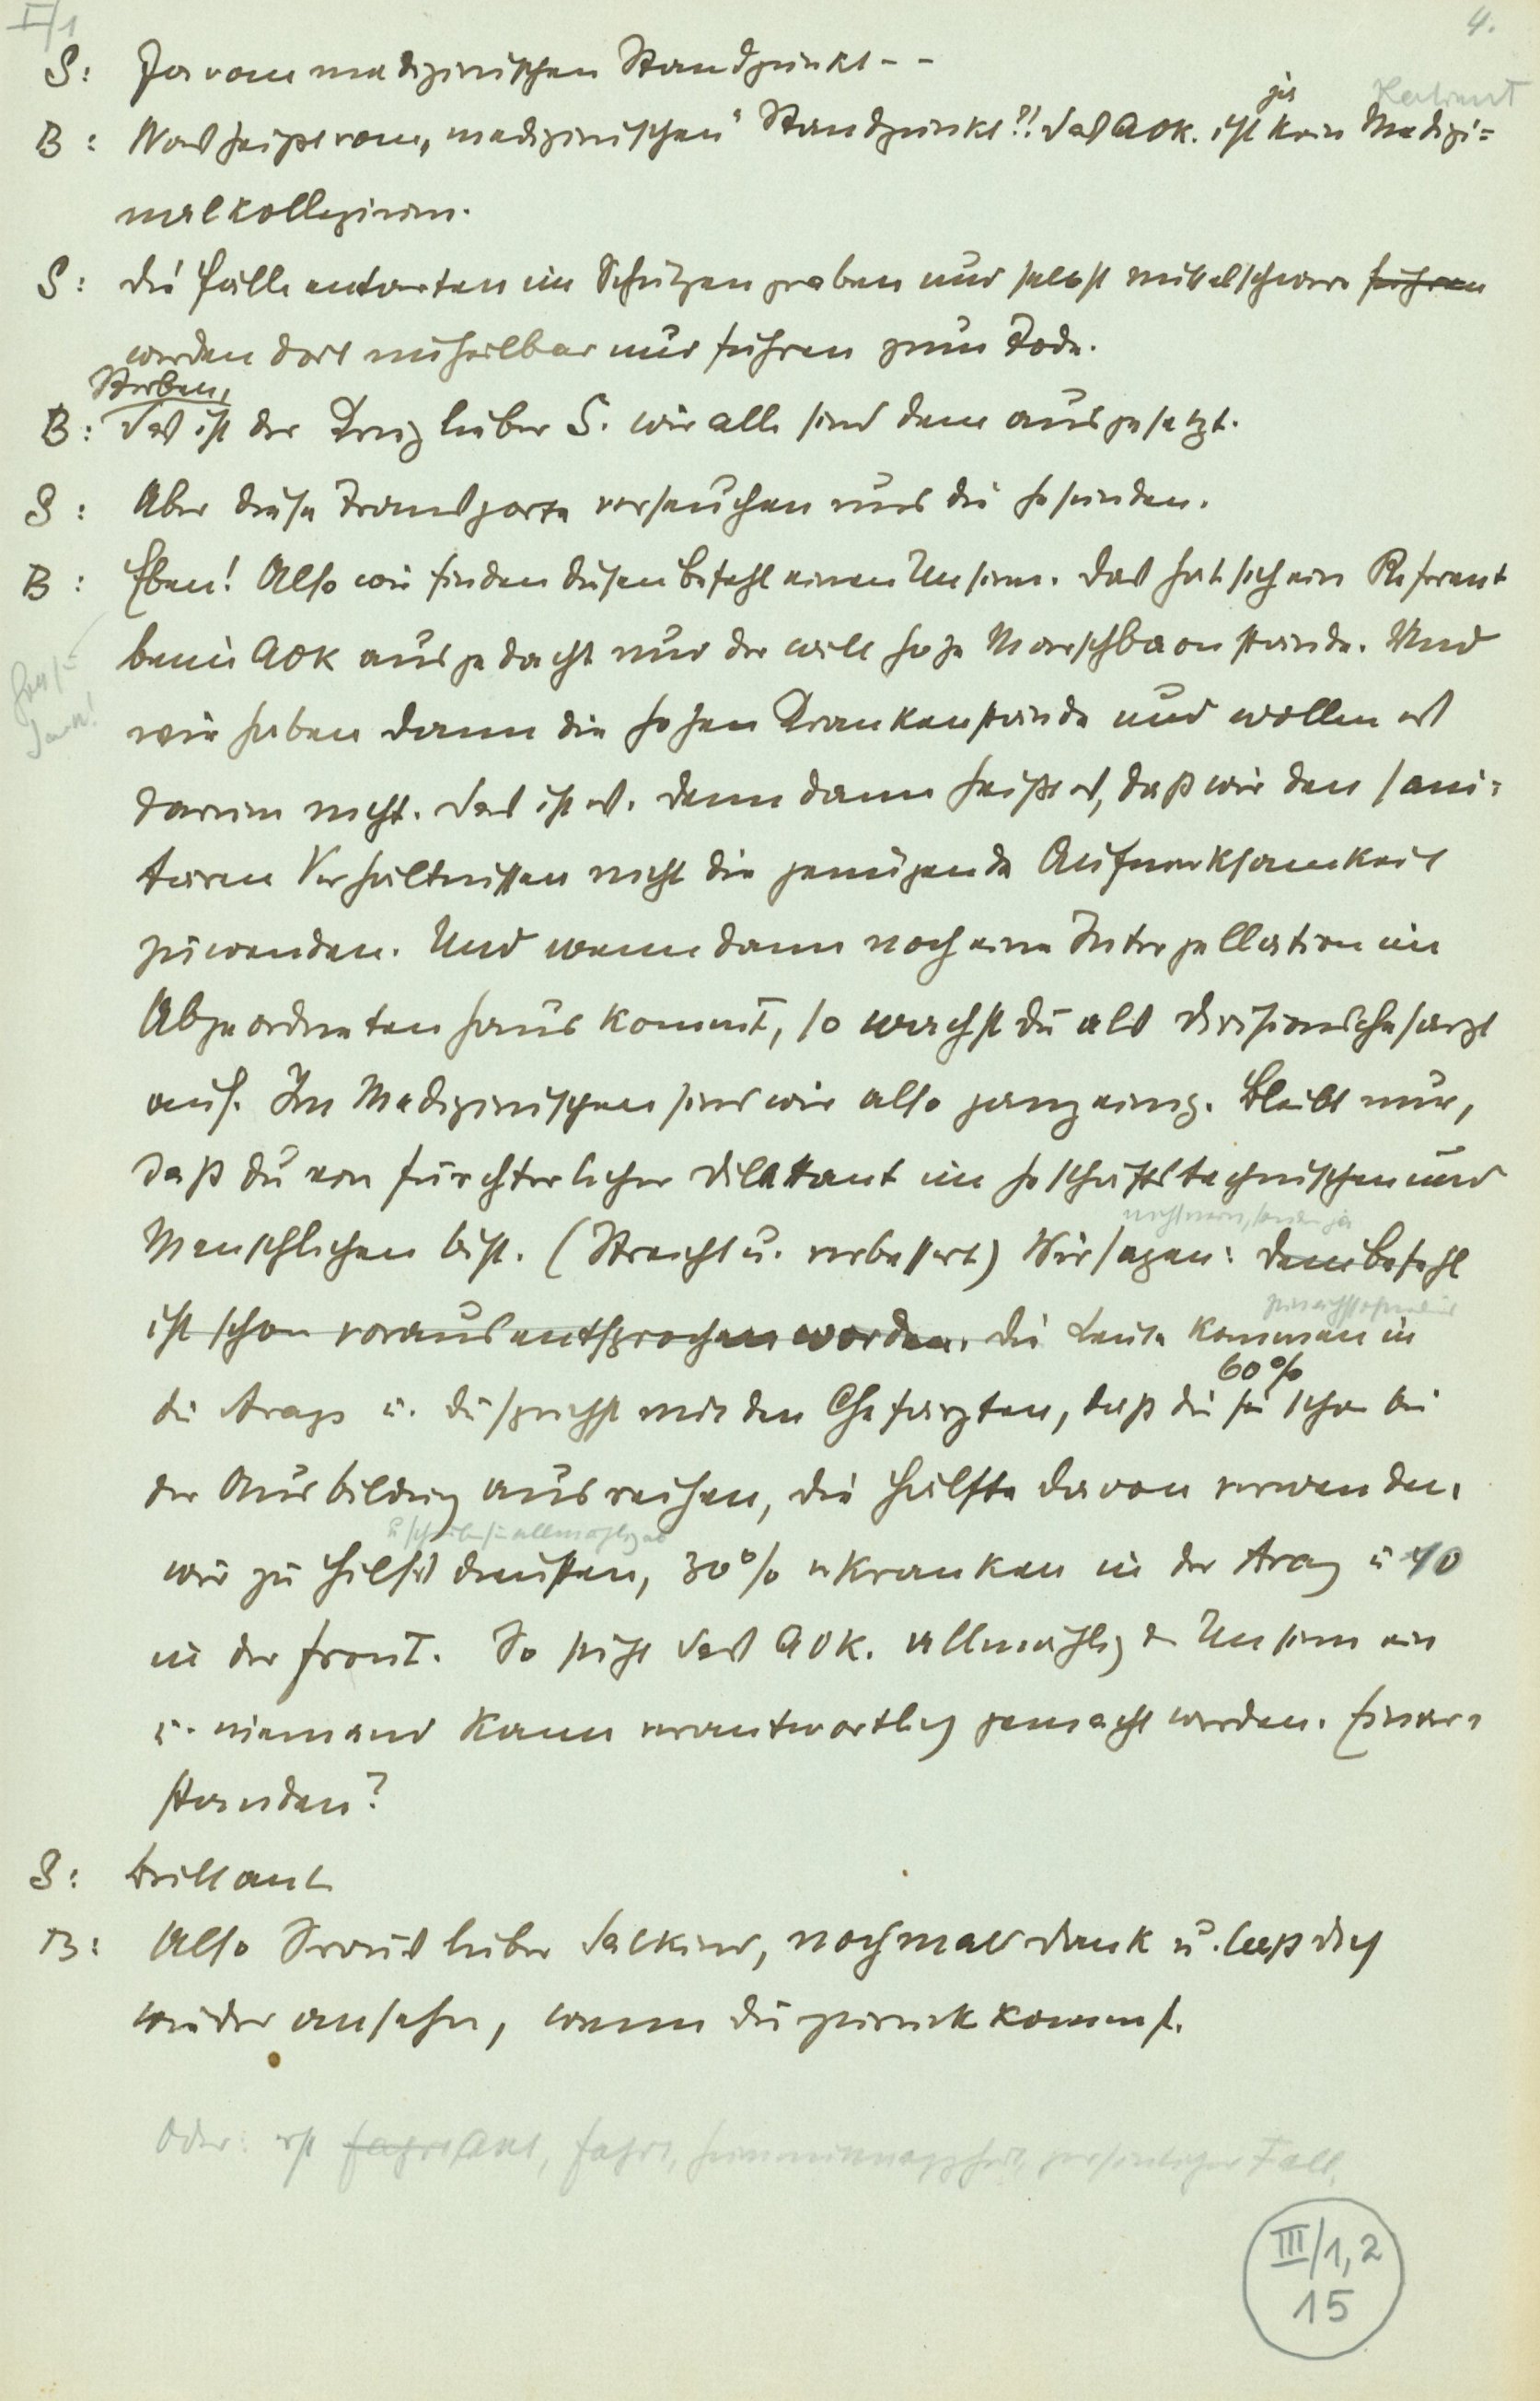 I/1
4.
S: Ja vom medizinischen Standpunkt - -
ja
B: Was heißt vom „medizinischen“ Standpunkt?! Das AOK. ist kein Medizi=
nalkollegium.
S: Die Fälle entarten im Schützengraben und selbst mittelschwere führen
werden dort unheilbar und führen zum Tode.
Sterben,
B: Das ist der Krieg lieber S. wir alle sind dem ausgesetzt.
S: Aber diese Transporte verseuchen uns die Gesunden.
B: Eben! Also wir finden diesen Befehl einen Unsinn. Das hat sich ein Referent
beim AOK ausgedacht und der will hohe Marschbaonstände. Und
wir haben dann die hohen Krankenstände und wollen es
darum nicht. Das ist es. Denn dann heißt es, daß wir den sani=
tären Verhältnissen nicht die genügende Aufmerksamkeit
zuwenden. Und wenn dann noch eine Interpellation im
Abgeordnetenhaus kommt, so wachst du als Divisionschefarzt
auf. Im Medizinischen sind wir also ganz einig. Bleibt nur,
daß du ein fürchterlicher Dilettant im Geschäftstechnischen und
nicht nein, sondern ja
Menschlichen bist. (Streicht u. verbessert) Wir sagen: Dem Befehl
ist schon voraus entsprochen worden. Die Leute kommen in
60%
die Araps u. du sprichst mit den Chefärzten, daß die sie schon bei
der Ausbildung ausreihen, die Hälfte davon verwenden
wir zu Hilfsd draussen, 30% erkranken in der Arap u 40
in der Front. So sieht das AOK. allmählig den Unsinn ein
u. niemand kann verantwortlich gemacht werden. Einver=
standen?
S: Brillant
B: Also Servus lieber Salkind, nochmals Dank u. laß dich
wieder ansehn, wenn du zurückkommst.
Oder: erst Fahrt, persönlicher Fall.
III/1,2
15